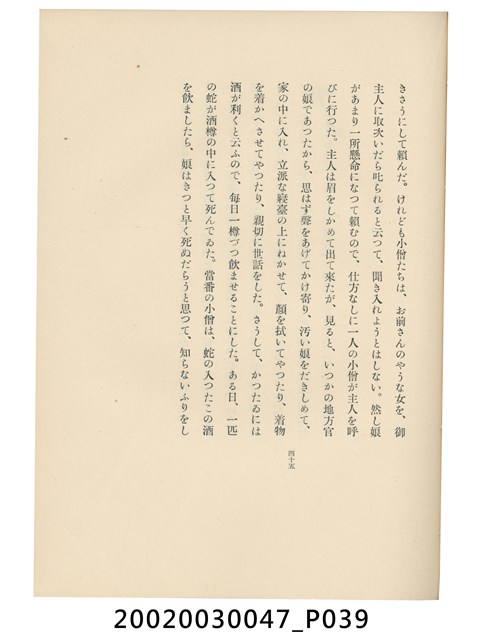 きさうにして頼んだ。けれども小僧たちは、お前さんのやうな女を、御
主人に取次いだら叱られると云つて、聞き入れようとはしない。然し娘
があまり一所懸命になつて頼むので、仕方なしに一人の小僧が主人を呼
びに行つた。主人は眉をしかめて出て來たが、見ると、いつかの地方官
の娘であつたから、思はず聲をあげてかけ寄り、汚い娘をだきしめて、
家の中に入れ、立派な寢臺の上にねかせて、顏を拭いてやつたり、着物
を着かへさせてやつたり、親切に世話をした。さうして、かつたゐには
酒が利くと云ふので、毎日一樽づつ飮ませることにした。ある日、一匹
の蛇が酒樽の中に入つて死んでゐた。當番の小僧は、蛇の入つたこの酒
を飮ましたら、娘はきつと早く死ぬだらうと思つて、知らないふりをし
四十五
20020030047_P039